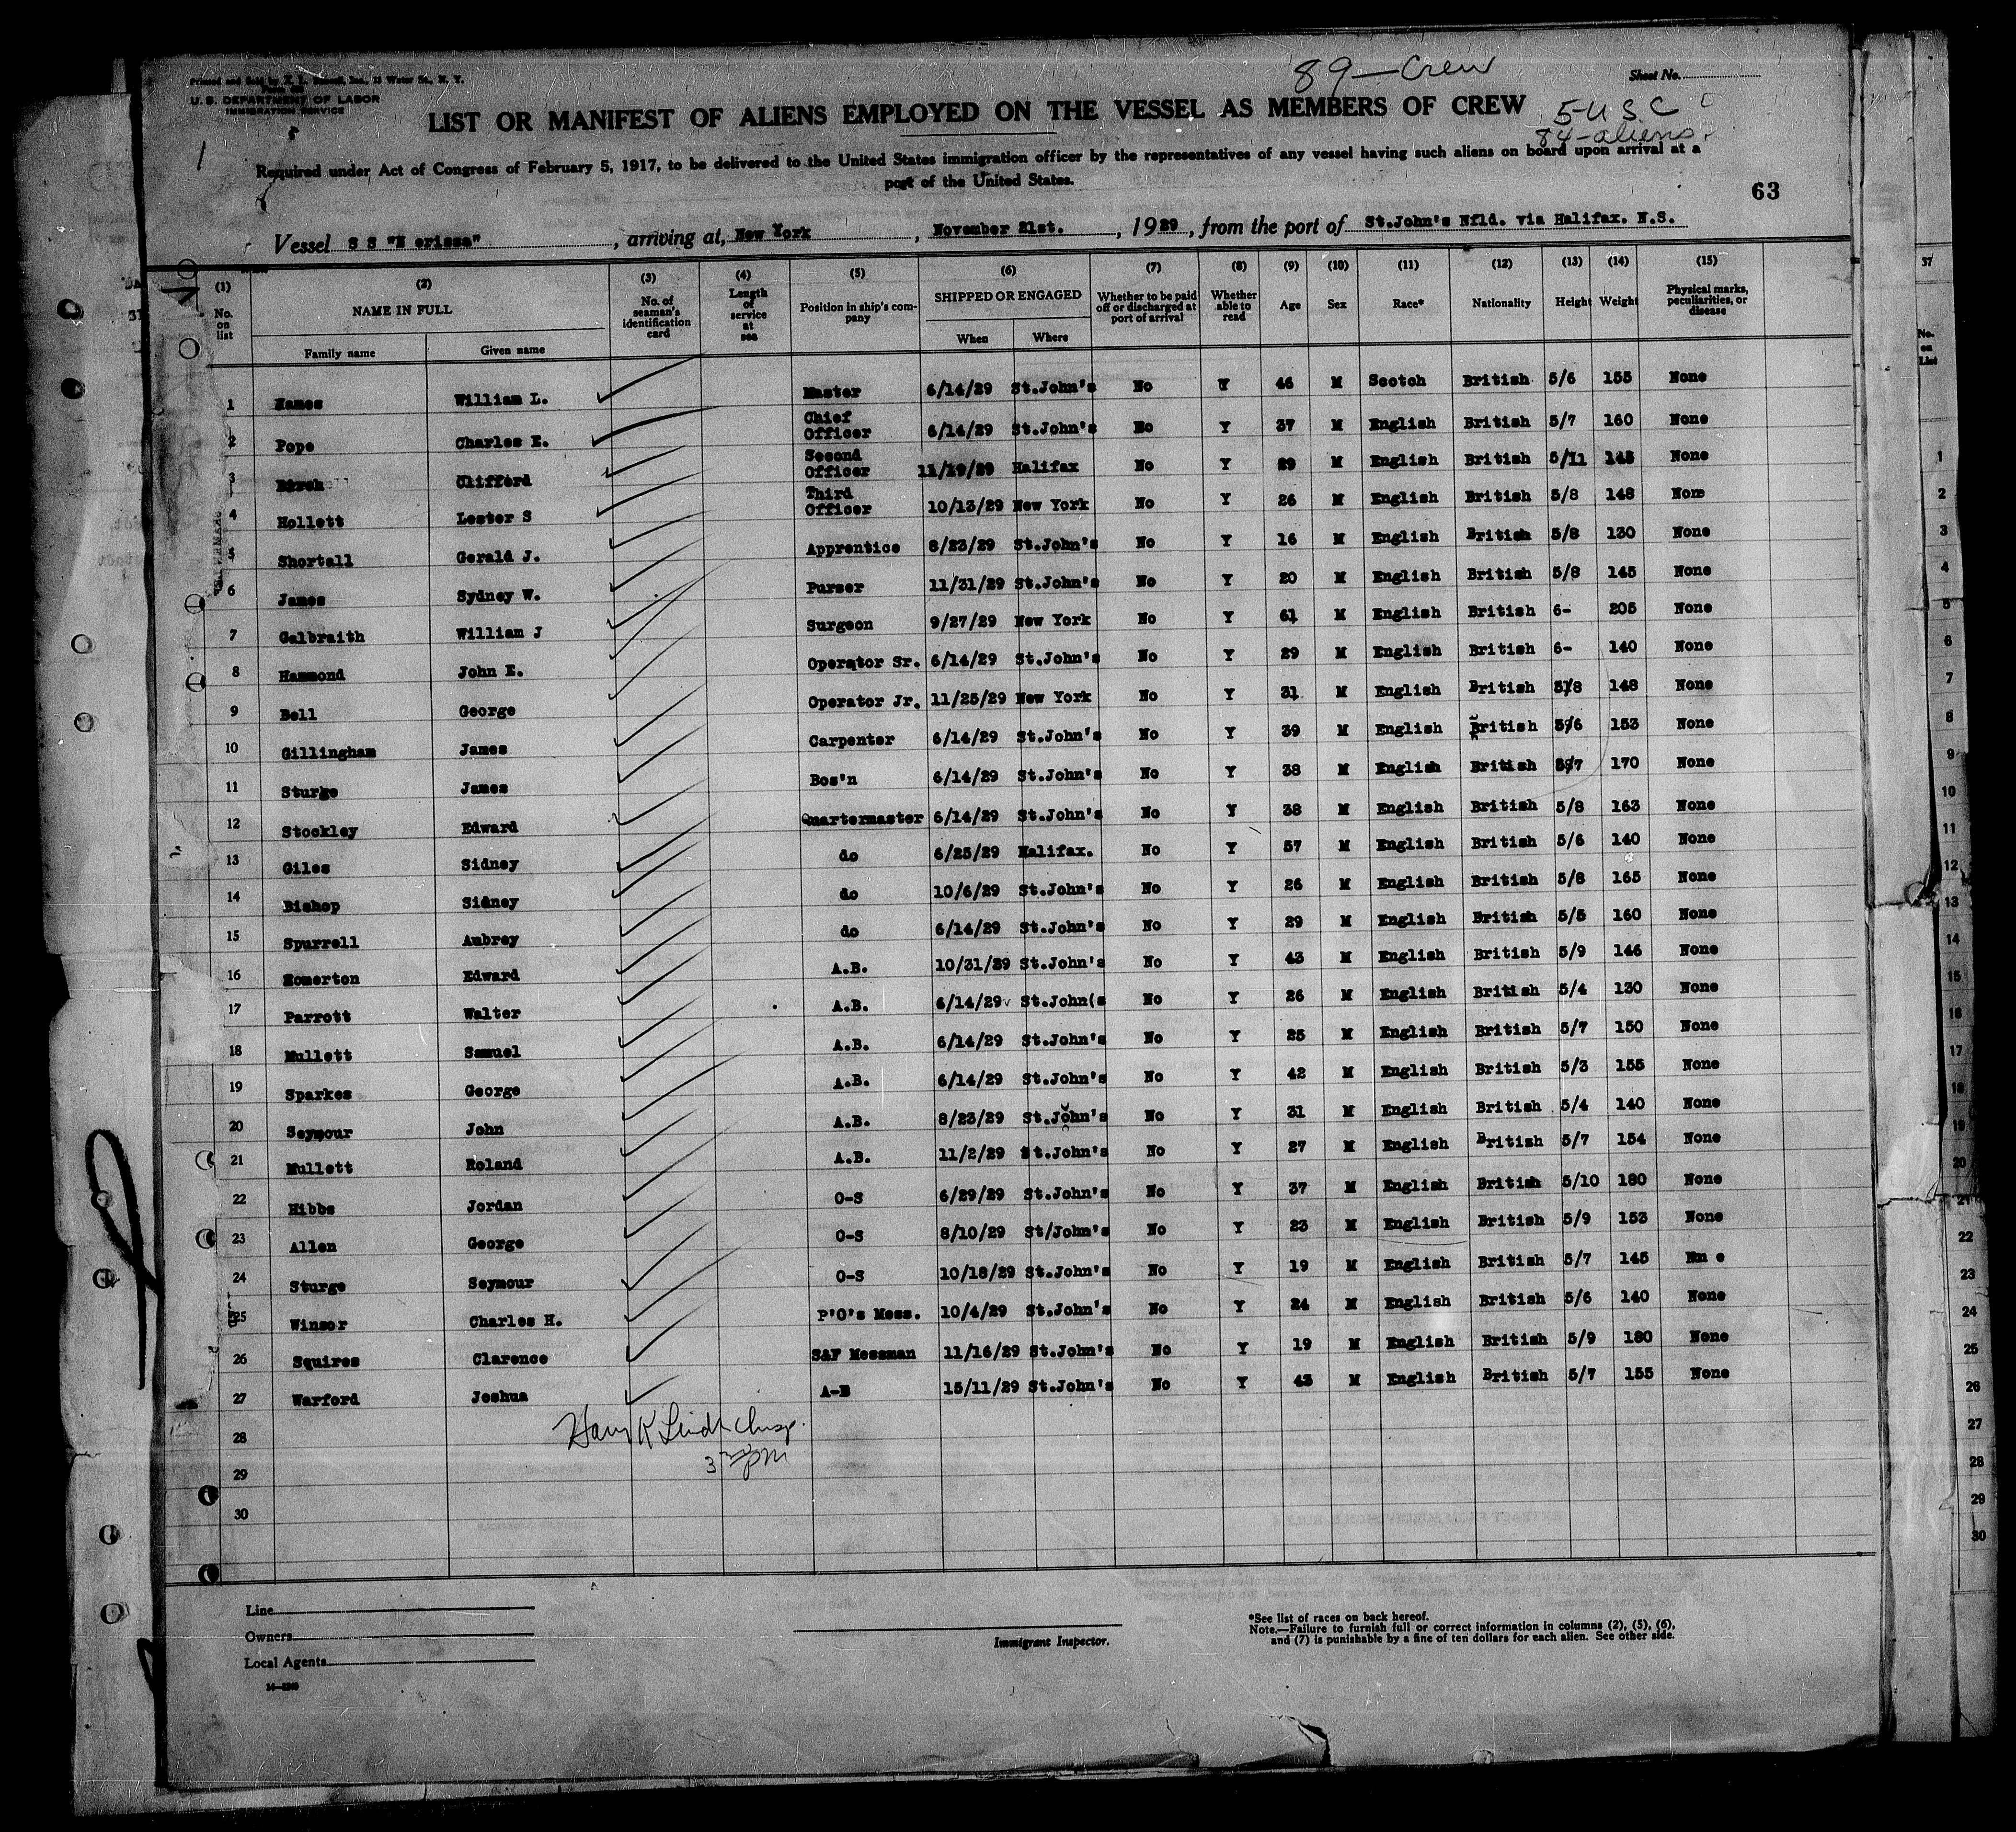 89-Crew
Sheet No.
U.S. DEPARTMENT OF LABOR
IMMIGRATION SERVICE
LIST OR MANIFEST OF ALIENS EMPLOYED ON THE VESSEL AS MEMBERS OF CREW
5-U S C
84-aliens.
1
Required under Act of Congress of February 5, 1917, to be delivered to the United States immigration officer by the representatives of any vessel having such aliens on board upon arrival at a
port of the United States.
63
Vessel S S "N erissa", arriving at, New York, November 21st., 1929, from the port of St.John's Nfld. via Halifax. N.S.
(1) No. on list (2) NAME IN FULL Family name Given name (3) No. of seaman's identification card (4) Length of service at sea (5) Position in ship's company (6) SHIPPED OR ENGAGED When Where (7) Whether to be paid off or discharged at port of arrival (8) Whether able to read (9) Age (10) Sex (11) Race* (12) Nationality (13) Height (14) Weight (15) Physical marks, peculiarities, or disease
1 William L. Master 6/14/29 St.John's No Y 46 M Scotch British 5/6 155 None
2 Pope Charles E. Chief Officer 6/14/29 St.John's No Y 37 M English British 5/7 160 None
3 Clifford Second Officer 11/19/29 Halifax No Y 29 M English British 5/11 145 None
4 Hollett Lester S Third Officer 10/13/29 New York No Y 26 M English British 5/8 148 None
5 Shortall Gerald J. Apprentice 8/23/29 St.John's No Y 16 M English British 5/8 130 None
6 James Sydney W. Purser 11/31/29 St.John's No Y 20 M English British 5/8 145 None
7 Galbraith William J Surgeon 9/27/29 New York No Y 61 M English British 6- 205 None
8 Hammond John E. Operator Sr. 6/14/29 St.John's No Y 29 M English British 6- 140 None
9 Bell George Operator Jr. 11/25/29 New York No Y 31 M English British 5/8 148 None
10 Gillingham James Carpenter 6/14/29 St.John's No Y 39 M English British 5/6 153 None
11 Sturge James Bos'n 6/14/29 St.John's No Y 38 M English British 5/7 170 None
12 Stockley Edward Quartermaster 6/14/29 St.John's No Y 38 M English British 5/8 163 None
13 Giles Sidney do 6/25/29 Halifax. No Y 57 M English British 5/6 140 None
14 Bishop Sidney do 10/6/29 St.John's No Y 26 M English British 5/8 165 None
15 Spurrell Aubrey do 6/14/29 St.John's No Y 29 M English British 5/5 160 None
16 Homerton Edward A.B. 10/31/29 St.John's No Y 43 M English British 5/9 146 None
17 Parrott Walter A.B. 6/14/29 St.John(s No Y 26 M English British 5/4 130 None
18 Mullett Samuel A.B. 6/14/29 St.John's No Y 25 M English British 5/7 150 None
19 Sparkes George A.B. 6/14/29 St.John's No Y 42 M English British 5/3 155 None
20 Seymour John A.B. 8/23/29 St.John's No Y 31 M English British 5/4 140 None
21 Mullett Roland A.B. 11/2/29 St.John's No Y 27 M English British 5/7 154 None
22 Hibbs Jordan O-S 6/29/29 St.John's No Y 37 M English British 5/10 180 None
23 Allen George O-S 8/10/29 St/John's No Y 23 M English British 5/9 153 None
24 Sturge Seymour O-S 10/18/29 St.John's No Y 19 M English British 5/7 145 Nn e
25 Winsor Charles H. P'O's Mess. 10/4/29 St.John's No Y 24 M English British 5/6 140 None
26 Squires Clarence S&F Messman 11/16/29 St.John's No Y 19 M English British 5/9 180 None
27 Warford Joshua A-B 15/11/29 St.John's No Y 43 M English British 5/7 155 None
28
29
30
Line
Owners
Local Agents
Immigrant Inspector.
*See list of races on back hereof.
Note.—Failure to furnish full or correct information in columns (2), (5), (6),
and (7) is punishable by a fine of ten dollars for each alien. See other side.
37
No. on List
1
2
3
4
5
6
7
8
9
10
11
12
13
14
15
16
17
18
19
20
21
22
23
24
25
26
27
28
29
30